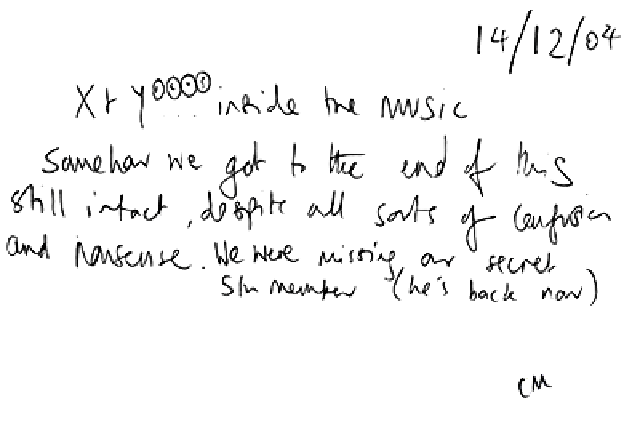 14/12/04
X + Y⓪⓪⓪⓪ inside the music
Somehow we got to the end of this
still intact, despite all sorts of confusion
and nonsense. We were missing our secret
5th member (he's back now)
CM